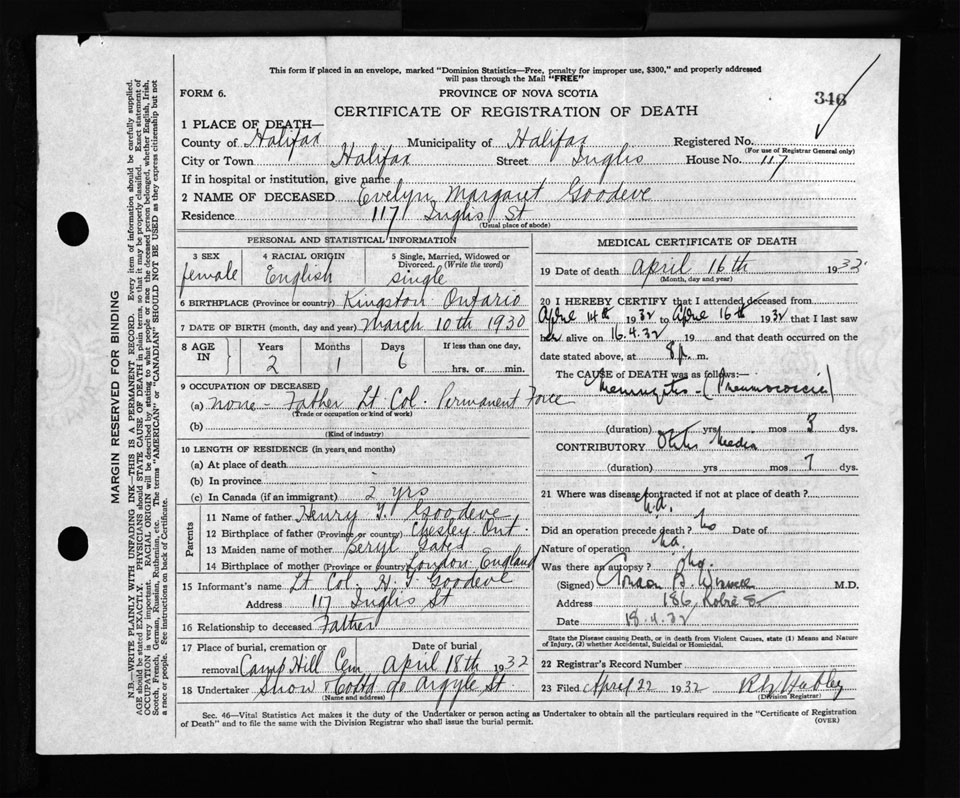 This form if placed in an envelope, marked "Dominion Statistics—Free, penalty for improper use, $300," and properly addressed
will pass through the Mail "FREE"
FORM 6.
PROVINCE OF NOVA SCOTIA
346
CERTIFICATE OF REGISTRATION OF DEATH
1 PLACE OF DEATH—
County of Halifax Municipality of Halifax Registered No.
(For use of Registrar General only)
City or Town Halifax Street Inglis House No. 117
If in hospital or institution, give name
2 NAME OF DECEASED Evelyn Margaret Goodeve
Residence 117 Inglis St
(Usual place of abode)
PERSONAL AND STATISTICAL INFORMATION
3 SEX 4 RACIAL ORIGIN 5 Single, Married, Widowed or
Divorced. (Write the word)
female English single
6 BIRTHPLACE (Province or country) Kingston Ontario
7 DATE OF BIRTH (month, day and year) March 10th 1930
8 AGE IN Years Months Days If less than one day,
2 1 6 hrs. or min.
9 OCCUPATION OF DECEASED
(a) none - Father Lt Col. Permanent Force
(Trade or occupation or kind of work)
(b)
(Kind of industry)
10 LENGTH OF RESIDENCE (in years and months)
(a) At place of death
(b) In province
(c) In Canada (if an immigrant) 2 yrs
Parents
11 Name of father Henry T. Goodeve
12 Birthplace of father (Province or country) Chesley Ont.
13 Maiden name of mother Beryl
14 Birthplace of mother (Province or country) London England
15 Informant's name Lt Col. H. T. Goodeve
Address 117 Inglis St
16 Relationship to deceased Father
17 Place of burial, cremation or Date of burial
removal Camp Hill Cem April 18th 1932
18 Undertaker Snow & Co Ltd 90 Argyle St.
(Name and address)
MEDICAL CERTIFICATE OF DEATH
19 Date of death April 16th 1932
(Month, day and year)
20 I HEREBY CERTIFY that I attended deceased from
April 14th 1932 to April 16th 1932 that I last saw
her alive on 16.4.32 19 and that death occurred on the
date stated above, at 8 p. m.
The CAUSE of DEATH was as follows:—
Meningitis - (Pneumococcic)
(duration) yrs mos 3 dys.
CONTRIBUTORY Otitis Media
(duration) yrs mos 7 dys.
21 Where was disease contracted if not at place of death?
n.a.
Did an operation precede death? no Date of
Nature of operation na.
Was there an autopsy? no.
(Signed) M.D.
Address 186 Robie St
Date 18.4.32
State the Disease causing Death, or in death from Violent Causes, state (1) Means and Nature
of Injury, (2) whether Accidental, Suicidal or Homicidal.
22 Registrar's Record Number
23 Filed April 22 1932
(Division Registrar)
Sec. 46—Vital Statistics Act makes it the duty of the Undertaker or person acting as Undertaker to obtain all the particulars required in the "Certificate of Registration
of Death" and to file the same with the Division Registrar who shall issue the burial permit.
(OVER)
MARGIN RESERVED FOR BINDING
N.B.—WRITE PLAINLY WITH UNFADING INK—THIS IS A PERMANENT RECORD. Every item of information should be carefully supplied.
AGE should be stated EXACTLY. PHYSICIANS should STATE CAUSE OF DEATH in plain terms, so that it may be properly classified. Exact statement of
OCCUPATION is very important. RACIAL ORIGIN will be described by stating to what people or race the deceased person belonged, whether English, Irish,
Scotch, French, German, Russian, Ruthenian, etc. The terms "AMERICAN" or "CANADIAN" SHOULD NOT BE USED as they express citizenship but not
a race or people. See instructions on back of Certificate.